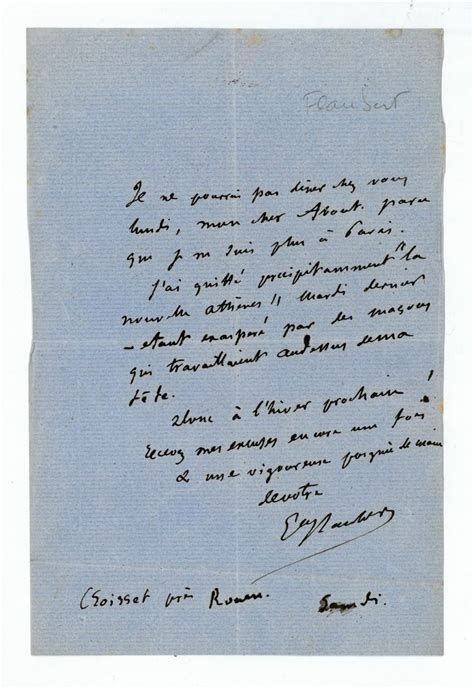 Flaubert
Je ne pourrai pas diner chez vous
lundi, mon cher About. parce
que je ne suis plus à Paris.
J'ai quitté précipitamment "la
nouvelle athènes" Mardi dernier
- étant exaspéré par des maçons
qui travaillaient audessus de ma
tête.
Donc à l'hiver prochain !
recevez mes excuses encore une fois
& une vigoureuse poignée de main
de votre
Gve Flaubert
Croisset près Rouen. Samedi.